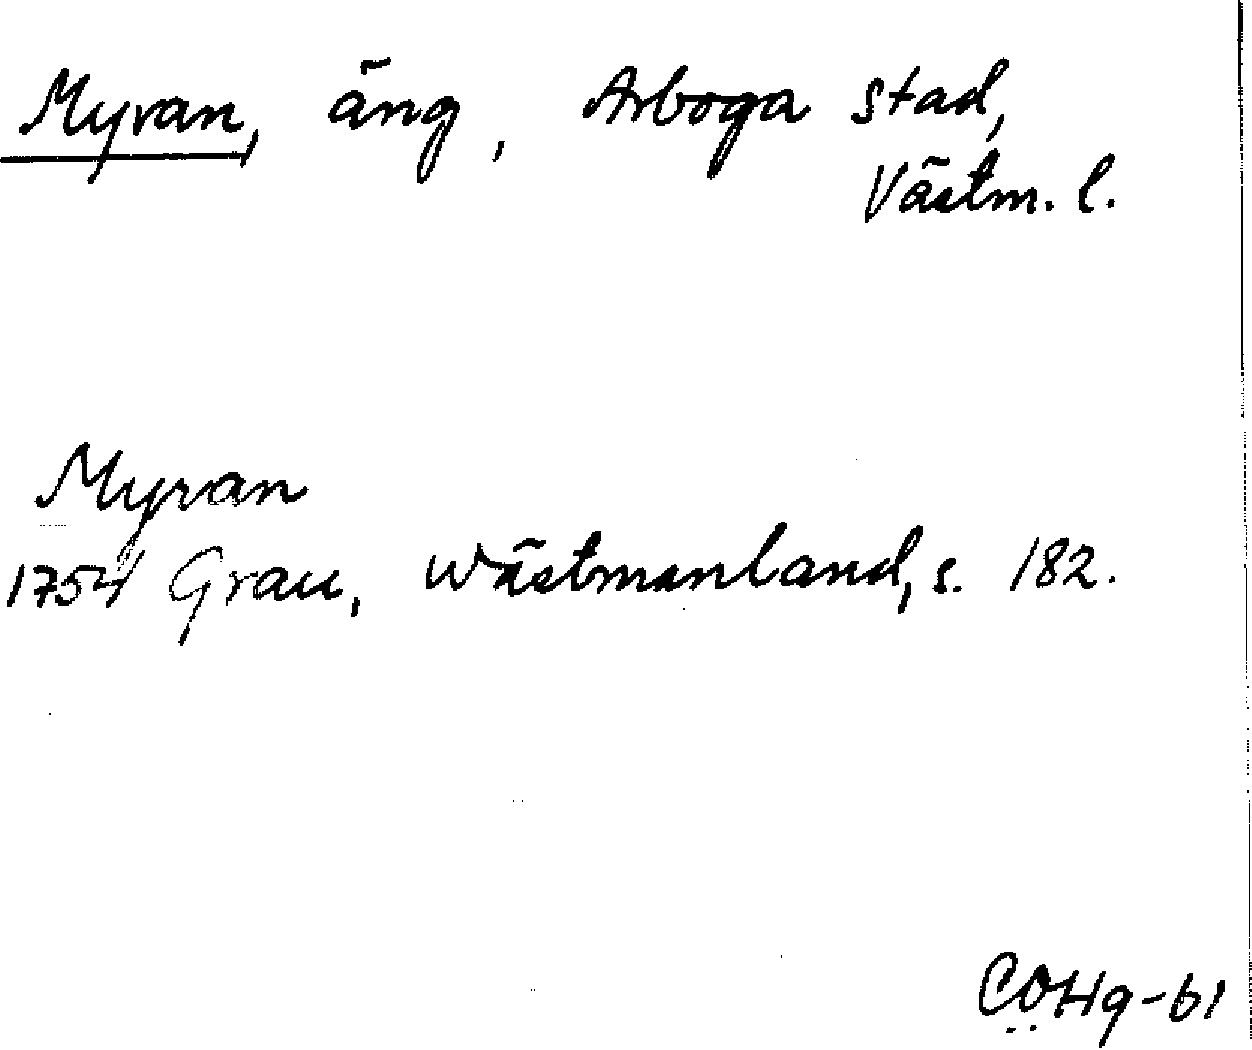 Myran, äng, Arboga stad,
Västm. l.
Myran
1754 Grau, Wästmanland, s. 182.
CÖHg-61